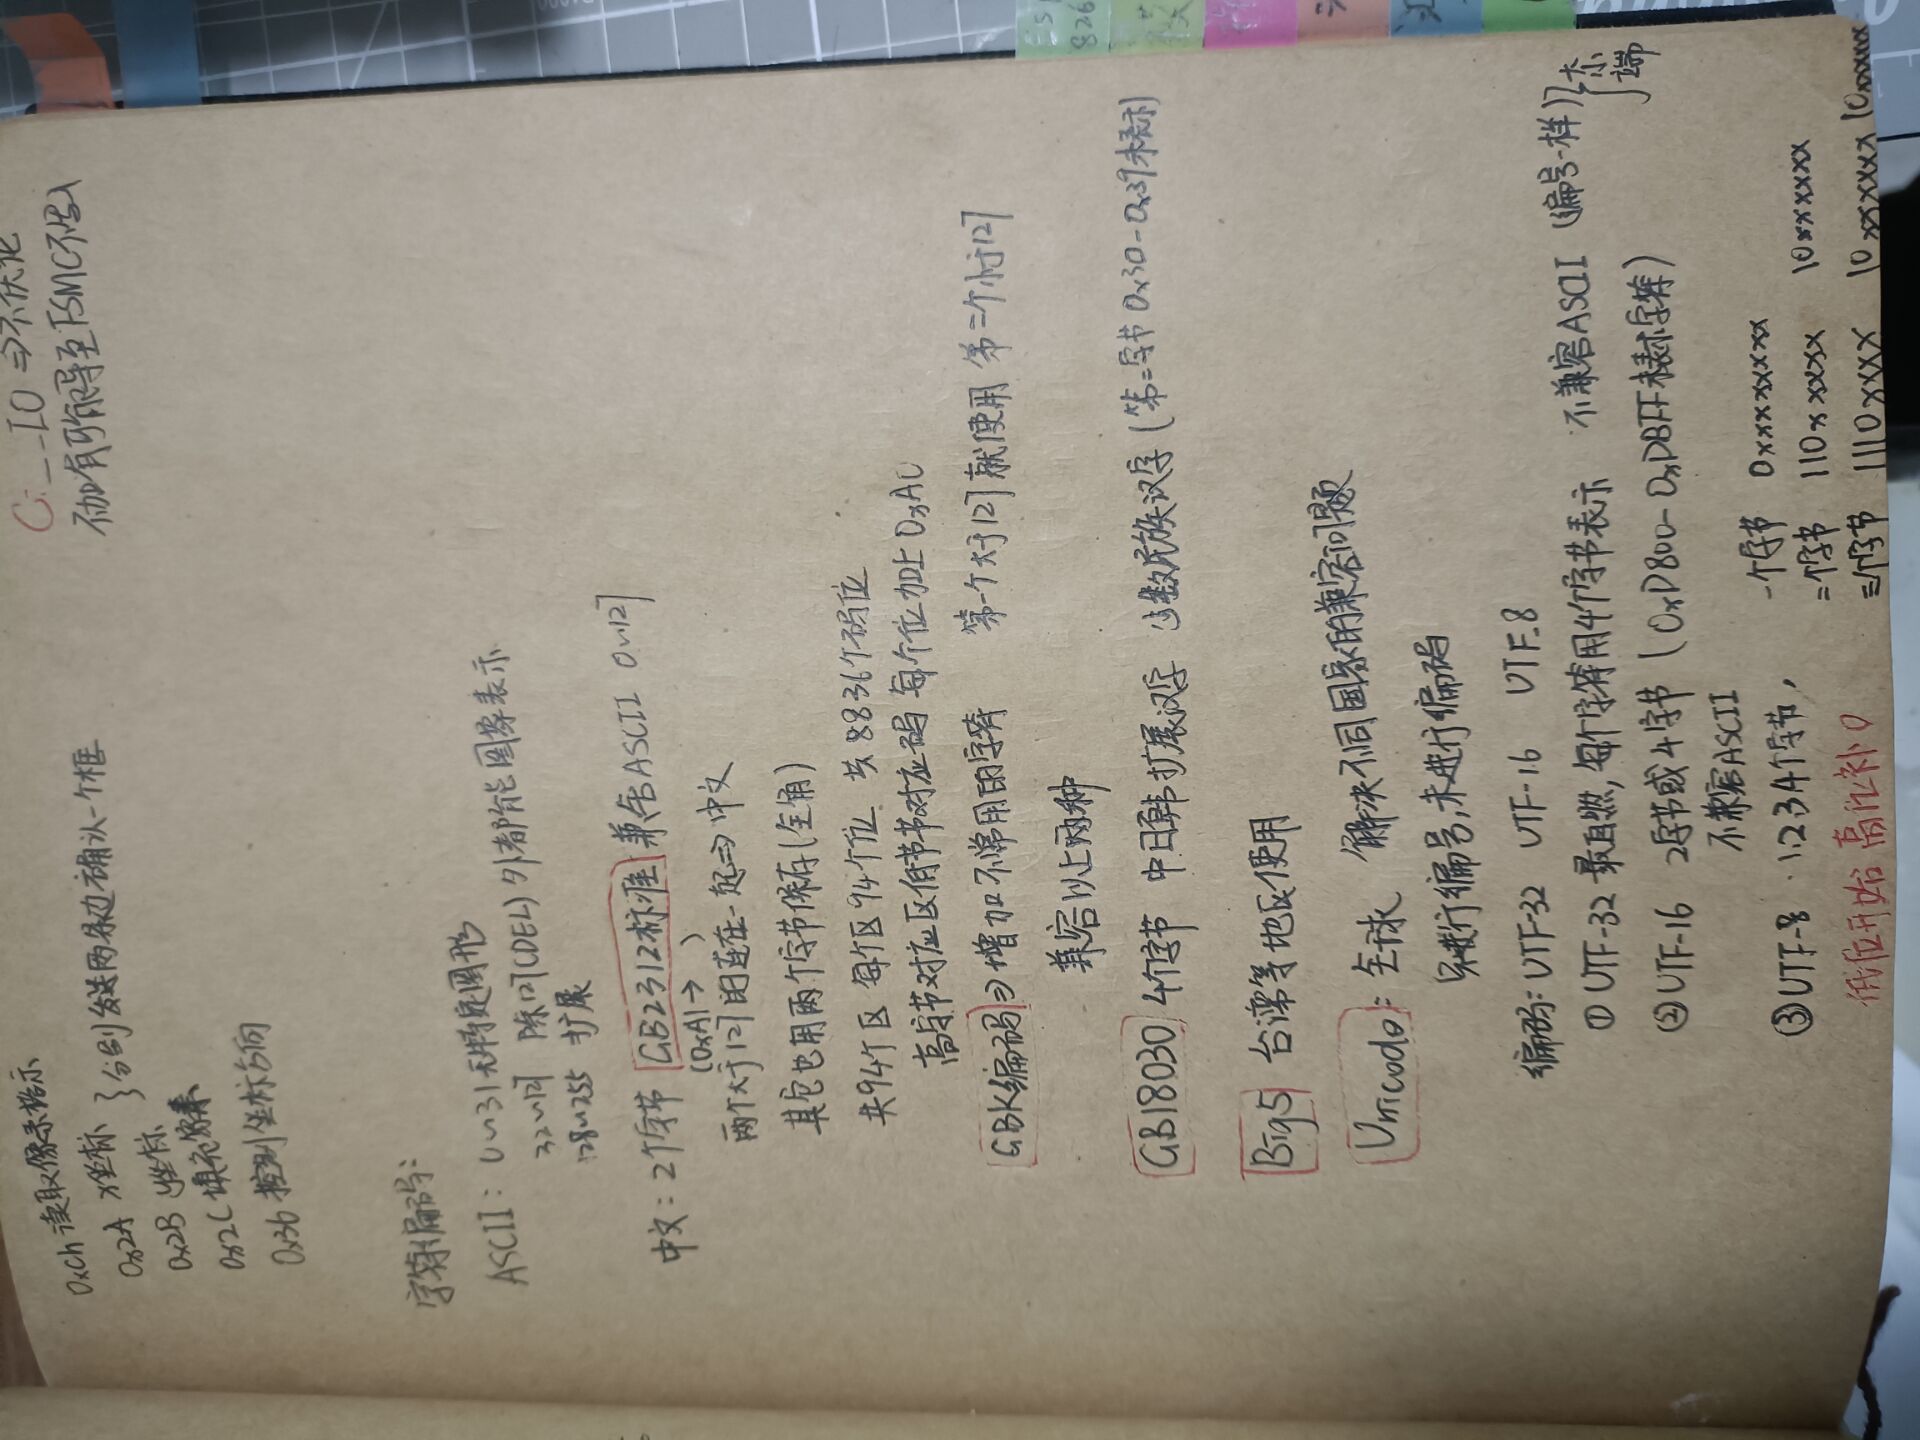 C: __IO ⇒不优化
不加有可能导至FSMC不写入
0xCh 读取像素格示
0x2A x坐标
0x2B y坐标 } 分别发送两条边确认一个框
0x2C 填充像素
0x36 控制坐标方向
字符编码:
ASCII: 0~31 无特定图形
32~127 除127(DEL)外都能图象表示
128~255 扩展
中文: 2个字节 GB2312标准 兼容ASCII 0~127
(0xA1→ )
两个大于127的连在一起⇒中文
其它也用两个字节保存(全角)
共94个区 每个区94个位 共8836个码位
高字节对应区低字节对应码 每个位加上0xA0
GBK编码⇒增加不常用的字符 第一个大于127就使用 第二个小于127
兼容以上两种
GB18030 4个字节 中日韩扩展汉字 少数民族汉字(第二字节0x30-0x39来表示)
Big5 台湾等地区使用
Unicode: 全球 解决不同国家的兼容问题
只进行编号,未进行编码
编码: UTF-32 UTF-16 UTF-8
① UTF-32 最自然,每个字符用4个字节表示 不兼容ASCII (编号一样)
② UTF-16 2字节或4字节 (0xD800-0xDBFF来表示字符) } 大小端
不兼容ASCII
③ UTF-8 1.2.3.4个字节,
一个字节 0xxxxxxxx
二个字节 110xxxxx 10xxxxxx
低位开始 高位补0
三个字节 1110xxxx 10xxxxxx 10xxxxxx